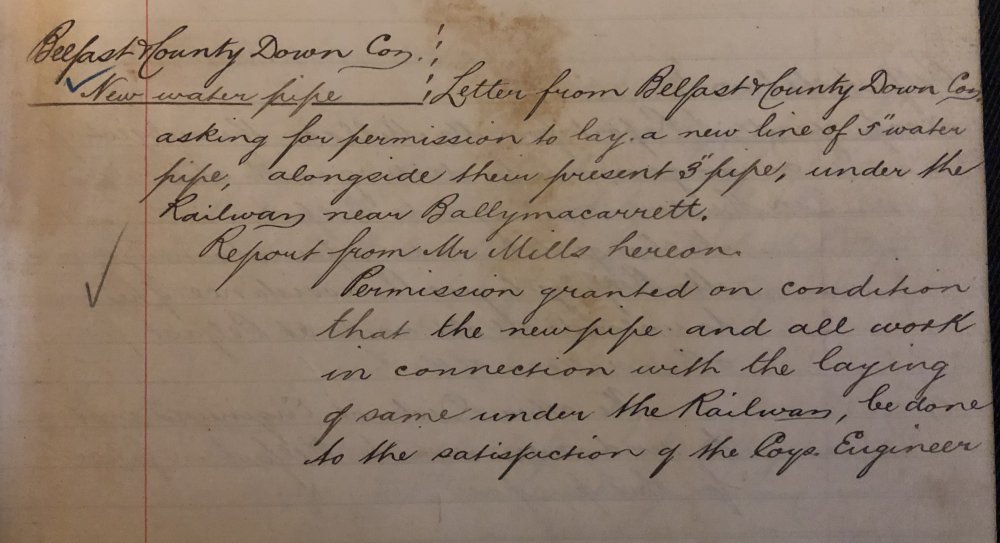 Belfast & County Down Coy.
New water pipe Letter from Belfast & County Down Coy.
asking for permission to lay a new line of 5" water
pipe, alongside their present 3" pipe, under the
Railway near Ballymacarrett.
Report from Mr Mills hereon.
Permission granted on condition
that the new pipe and all work
in connection with the laying
of same under the Railway, be done
to the satisfaction of the Coys. Engineer